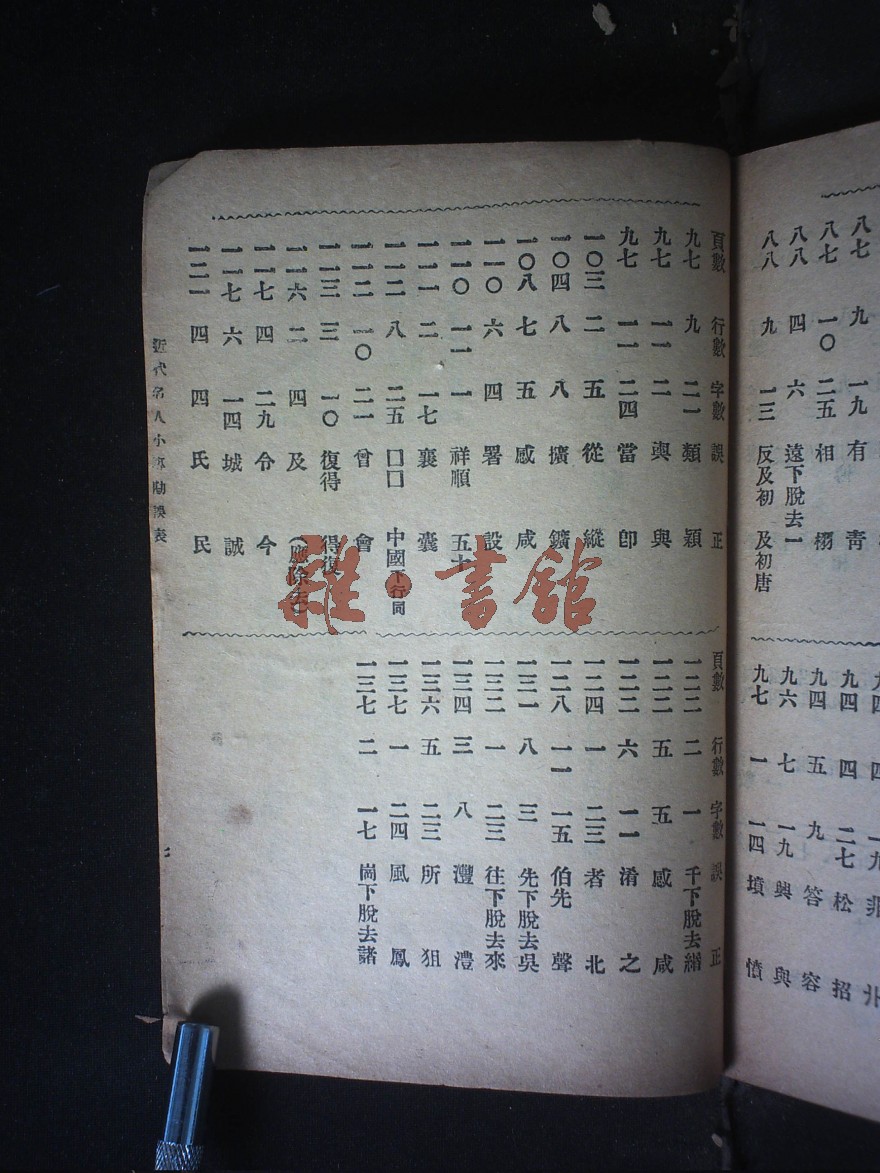 八七 九 一九 有 青
八七 一〇 二五 相 栩
八八 四 六 遠下脫去一
八八 九 一三 反及初 及初唐
九四 四 二七 松 招
九四 五 九 答 容
九六 七 一九 興 與
九七 一 一四 墳 憤
頁數 行數 字數 誤 正
九七 九 二一 類 穎
九七 一一 二 輿 與
九七 一一 二四 當 卽
一〇三 二 五 從 縱
一〇四 八 八 擴 鑛
一〇八 七 五 感 咸
一一〇 六 四 署 設
一一〇 一一 一 祥順 五十
一一一 二 一七 襄 囊
一一二 八 二五 口口 中國下行同
一一二 一〇 二一 曾 會
一一三 三 一〇 復得 得復
一一六 二 四 及 (應除去)
一一七 四 二九 令 今
一一七 六 一四 城 誠
一二一 四 四 氏 民
頁數 行數 字數 誤 正
一二二 二 一 千下脫去緡
一二二 五 五 感 咸
一二三 六 一一 淆 之
一二四 一 二三 者 北
一二八 一一 一五 伯先 聲
一三一 八 三 先下脫去吳
一三二 一 二三 往下脫去來
一三四 三 八 灃 澧
一三六 五 二三 所 狙
一三七 一 二四 風 鳳
一三七 二 一七 崗下脫去諸
近代名人小傳勘誤表
七
雜·書館